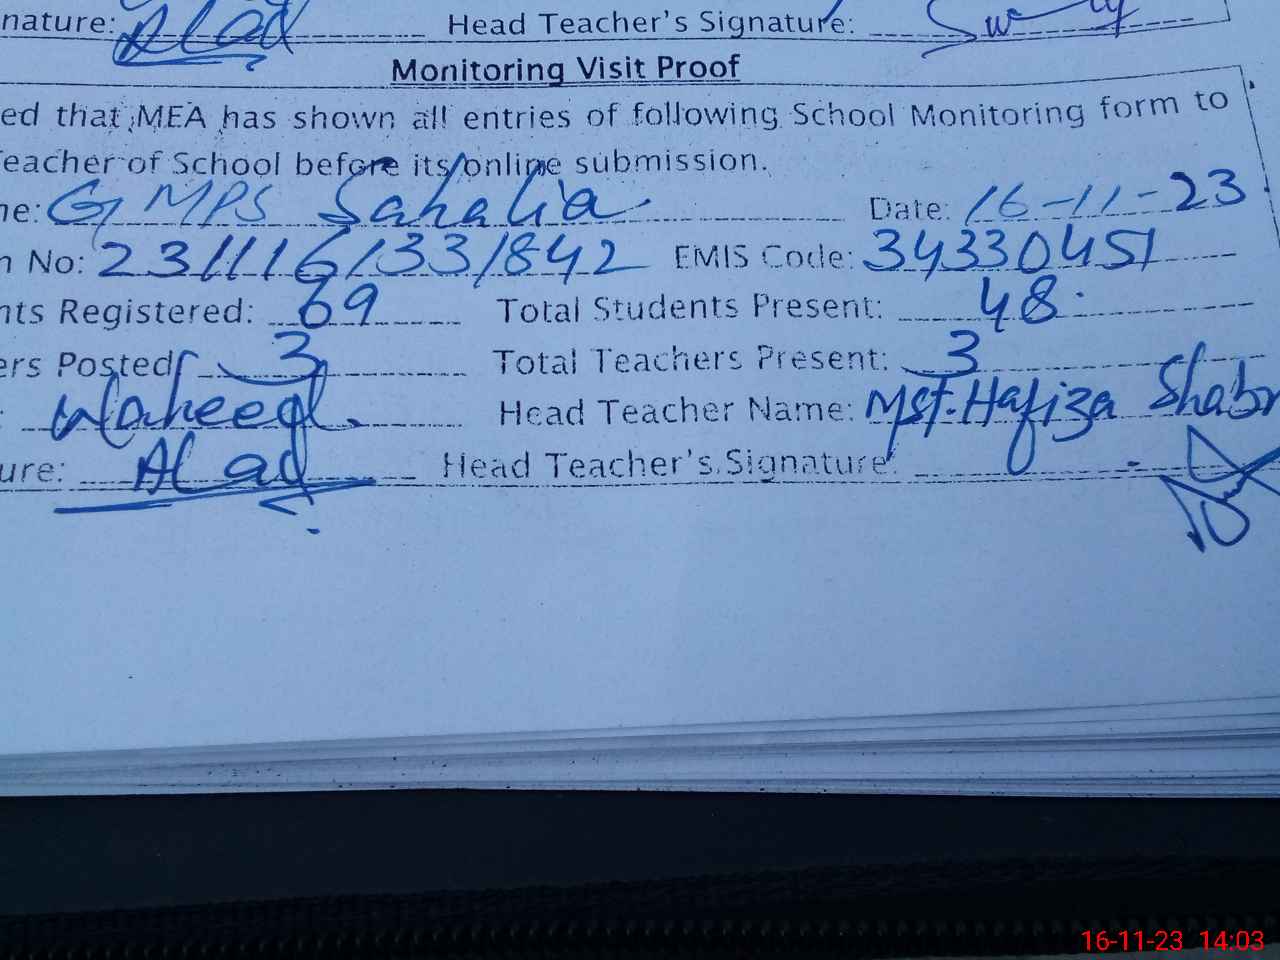 nature: Head Teacher's Signature:
Monitoring Visit Proof
ed that MEA has shown all entries of following School Monitoring form to
eacher of School before its online submission.
ne: GMPS Sahalia Date: 16-11-23
n No: 2311161331842 EMIS Code: 34330451
nts Registered: 69 Total Students Present: 48
ers Posted 3 Total Teachers Present: 3
: Waheed Head Teacher Name: Mst. Hafiza Shabr
ure: Head Teacher's Signature:
16-11-23 14:03